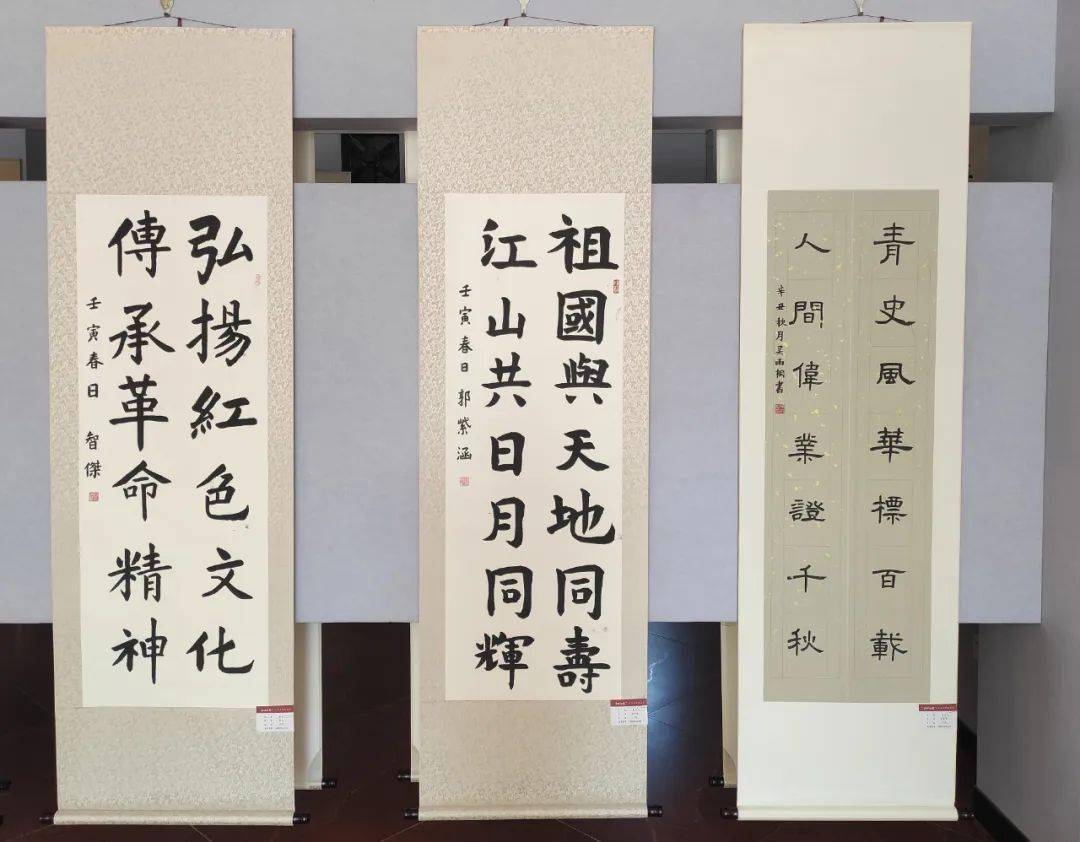 弘揚紅色文化
傳承革命精神
壬寅春日 智傑
祖國與天地同壽
江山共日月同輝
壬寅春日 郭紫涵
青史風華標百載
人間偉業證千秋
辛丑秋月吴雨桐書